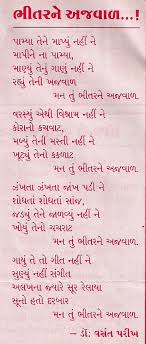 ભીતરને અજવાળ...!
પામ્યા તેને માપ્યું નહીં ને
માપીને ના પામ્યા,
માણ્યું તેનું ગાણું નહીં ને
રહ્યું તેની ખજવાળ
મન તું ભીતરને અજવાળ.
વરસ્યું એથી વિશ્રામ નહીં ને
કોરાનો કચવાટ,
મળ્યું તેની મસ્તી નહીં ને
ખૂટ્યો તેનો કકળાટ
મન તું ભીતરને અજવાળ.
ઝંખતા ઝંખતા જાંખ પડી ને
શોધતાં શોધતાં સાંજ,
જડ્યું તેને જાળવ્યું નહીં ને
ખોયું તેનો ચચરાટ
મન તું ભીતરને અજવાળ.
ગાયું તે તો ગીત નહીં ને
સુણ્યું નહીં સંગીત
અલખના જ્યારે સૂર રેલાયા
સૂનો હતો દરબાર
મન તું ભીતરને અજવાળ.
– ડૉ. વસંત પરીખ